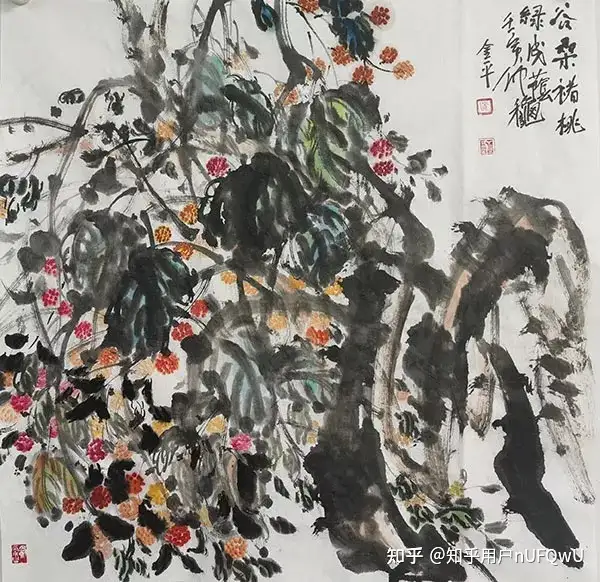 谷桑楮桃
緑成蔭
壬寅仲穐
金平
知乎 @知乎用户nUFQwU